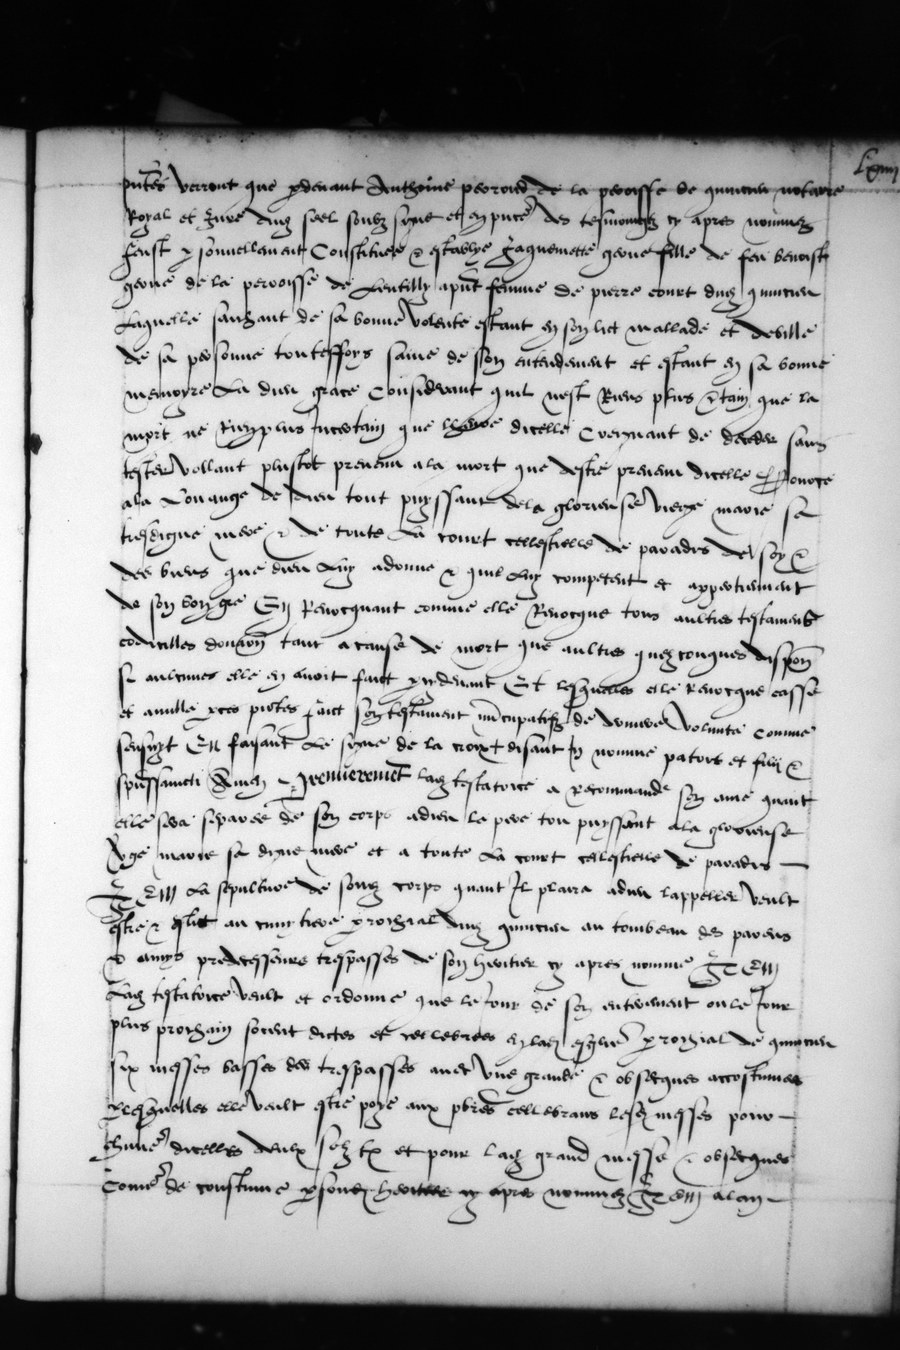 Lxiiii
pntes verront que pdevant Anthoine peoroud de la peroisse de quincieu notaire
Royal et Jure dudt seel soubz signe et en pnce des tesmoingtz cy apres nommez
feust psonnellement Constituee & establye Jaquemette geone fille de feu benoist
geone de la peroisse de Lentilly apnt femme de pierre court dudt quincieu
Laquelle saichant de sa bonne volente estant en son lict mallade et deville
de sa personne touteffoys saine de son entendement et estant en sa bonne
memoyre La dieu grace Considerant quil nest Riens plus ctain que la
mort ne Rien plus incertain que lheure dicelle Craignant de deceder sans
tester vollant plustot prevenir a la mort que destre prevenu dicelle
a la Louange de dieu tout puyssant de la glorieuse vierge marie sa
tresdigne mere & de toute La court cellestielle de paradis de soy &
des biens que dieu Luy a donne & quil Luy competent et appertiennent
de son bon gre En Revocquant comme elle Revocque tous aultres testamens
codicilles donaon tant a cause de mort que aultres quezconques dispon
si aulcunes elle en avoit faict pcedevant Et lesquelles elle Revocque casse
et anulle p ces pntes faict son testament nuncupatif de derniere volunte comme
sensuyt En faisant Le signe de la croix + disant In nomine patris et filij &
spussancti Amen Premierement ladt testatrice a Recommande son ame quant
elle sera separee de son corps a dieu le pere tou puyssant a la glorieuse
vge marie sa digne mere et a toute La court celestielle de paradis
ITEM La sepulture de sondt corps quant Il plaira a dieu lappeller veult
estre & eslit au cimytiere prochial dudt quincieu au tombeau des parens
& amys predecesseurs trespasses de son heritier cy apres nomme ITEM
Ladt testatrice veult et ordonne que le Jour de son enterement ou le Jour
plus prochain soient dictes et cellebrees en ladt esglise prochial de quincieu
six messes basses des trespasses avec une grande & obseques accostumees
Lesquelles elle veult estre paye aux pbres cellebrans lesdt messes pour
chune dicelles deulx solz tz et pour ladt grand messe & obseques
Comme de coustume p sondt heritier cy apres nomme ITEM a la fin